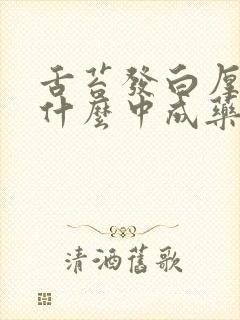 舌苔發白厚
什麼中成藥
清酒舊歌